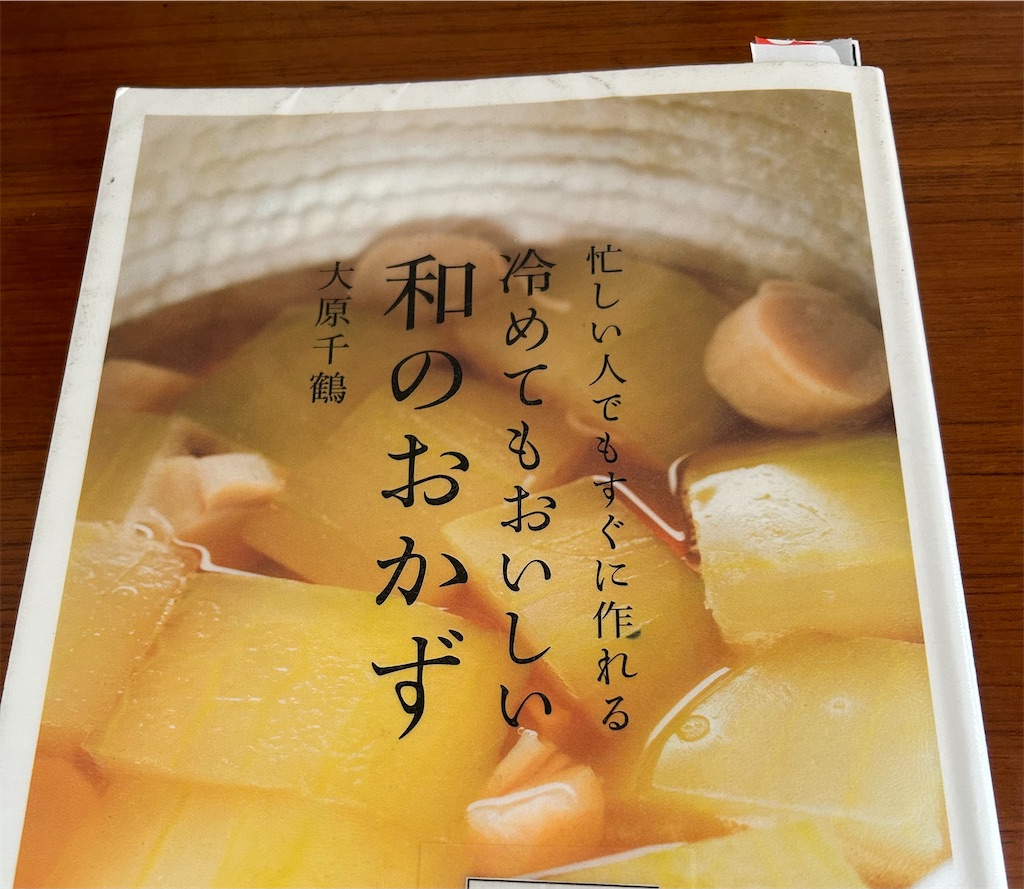 忙しい人でもすぐに作れる
冷めてもおいしい
和のおかず
大原千鶴